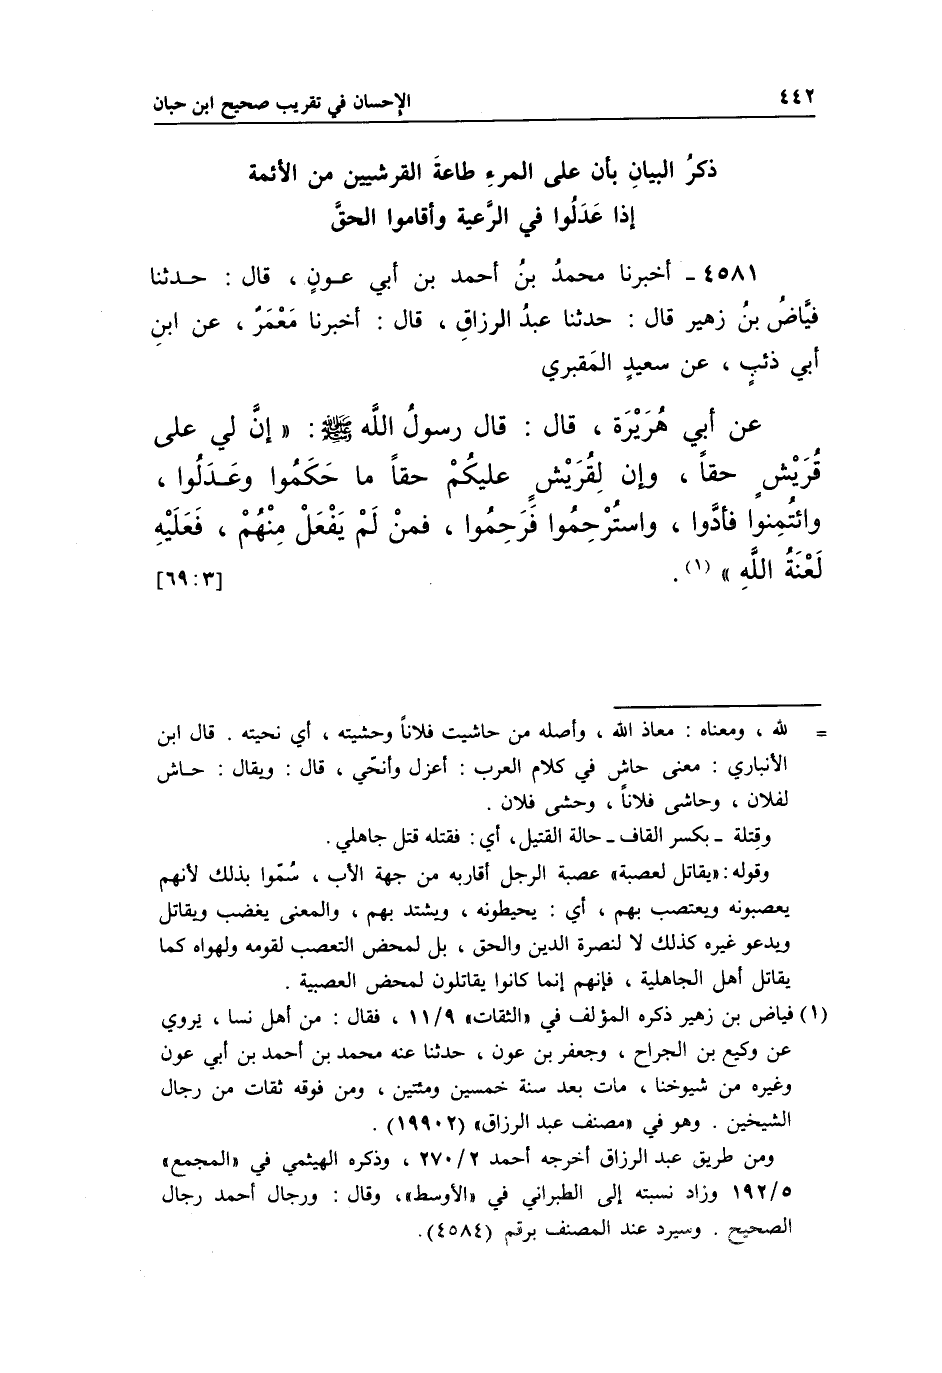 ٤٤٢
الإحسان في تقريب صحيح ابن حبان
ذكرُ البيانِ بأن على المرءِ طاعةَ القرشيين من الأئمة
إذا عَدَلُوا في الرَّعية وأقاموا الحقَّ
٤٥٨١ ـ أخبرنا محمدُ بنُ أحمد بن أبي عـونٍ ، قال : حـدثنا
فيَّاضُ بنُ زهير قال : حدثنا عبدُ الرزاقِ ، قال : أخبرنا مَعْمَرٌ ، عن ابنِ
أبي ذئبٍ ، عن سعيدٍ المَقبري
عن أبي هُرَيْرَة ، قال : قال رسولُ اللَّه ﷺ : « إنَّ لي على
قُرَيْشٍ حقاً ، وإن لِقُرَيْشٍ عليكُمْ حقاً ما حَكَمُوا وعَـدَلُوا ،
وائتُمِنوا فأدَّوا ، واستُرْحِمُوا فَرَحِمُوا ، فمنْ لَمْ يَفْعَلْ مِنْهُمْ ، فَعَلَيْهِ
لَعْنَةُ اللَّهِ » (١) . [٣ : ٦٩]
= لله ، ومعناه : معاذ الله ، وأصله من حاشيت فلاناً وحشيته ، أي نحيته . قال ابن
الأنباري : معنى حاش في كلام العرب : أعزل وأنحّي ، قال : ويقال : حـاش
لفلان ، وحاشى فلاناً ، وحشى فلان .
وقِتلة ـ بكسر القاف ـ حالة القتيل، أي : فقتله قتل جاهلي .
وقوله : «يقاتل لعصبة» عصبة الرجل أقاربه من جهة الأب ، سُمّوا بذلك لأنهم
يعصبونه ويعتصب بهم ، أي : يحيطونه ، ويشتد بهم ، والمعنى يغضب ويقاتل
ويدعو غيره كذلك لا لنصرة الدين والحق ، بل لمحض التعصب لقومه ولهواه كما
يقاتل أهل الجاهلية ، فإنهم إنما كانوا يقاتلون لمحض العصبية .
(١) فياض بن زهير ذكره المؤلف في «الثقات» ١١/٩ ، فقال : من أهل نسا ، يروي
عن وكيع بن الجراح ، وجعفر بن عون ، حدثنا عنه محمد بن أحمد بن أبي عون
وغيره من شيوخنا ، مات بعد سنة خمسين ومئتين ، ومن فوقه ثقات من رجال
الشيخين . وهو في «مصنف عبد الرزاق» (١٩٩٠٢) .
ومن طريق عبد الرزاق أخرجه أحمد ٢٧٠/٢ ، وذكره الهيثمي في «المجمع»
١٩٢/٥ وزاد نسبته إلى الطبراني في «الأوسط»، وقال : ورجال أحمد رجال
الصحيح . وسيرد عند المصنف برقم (٤٥٨٤).